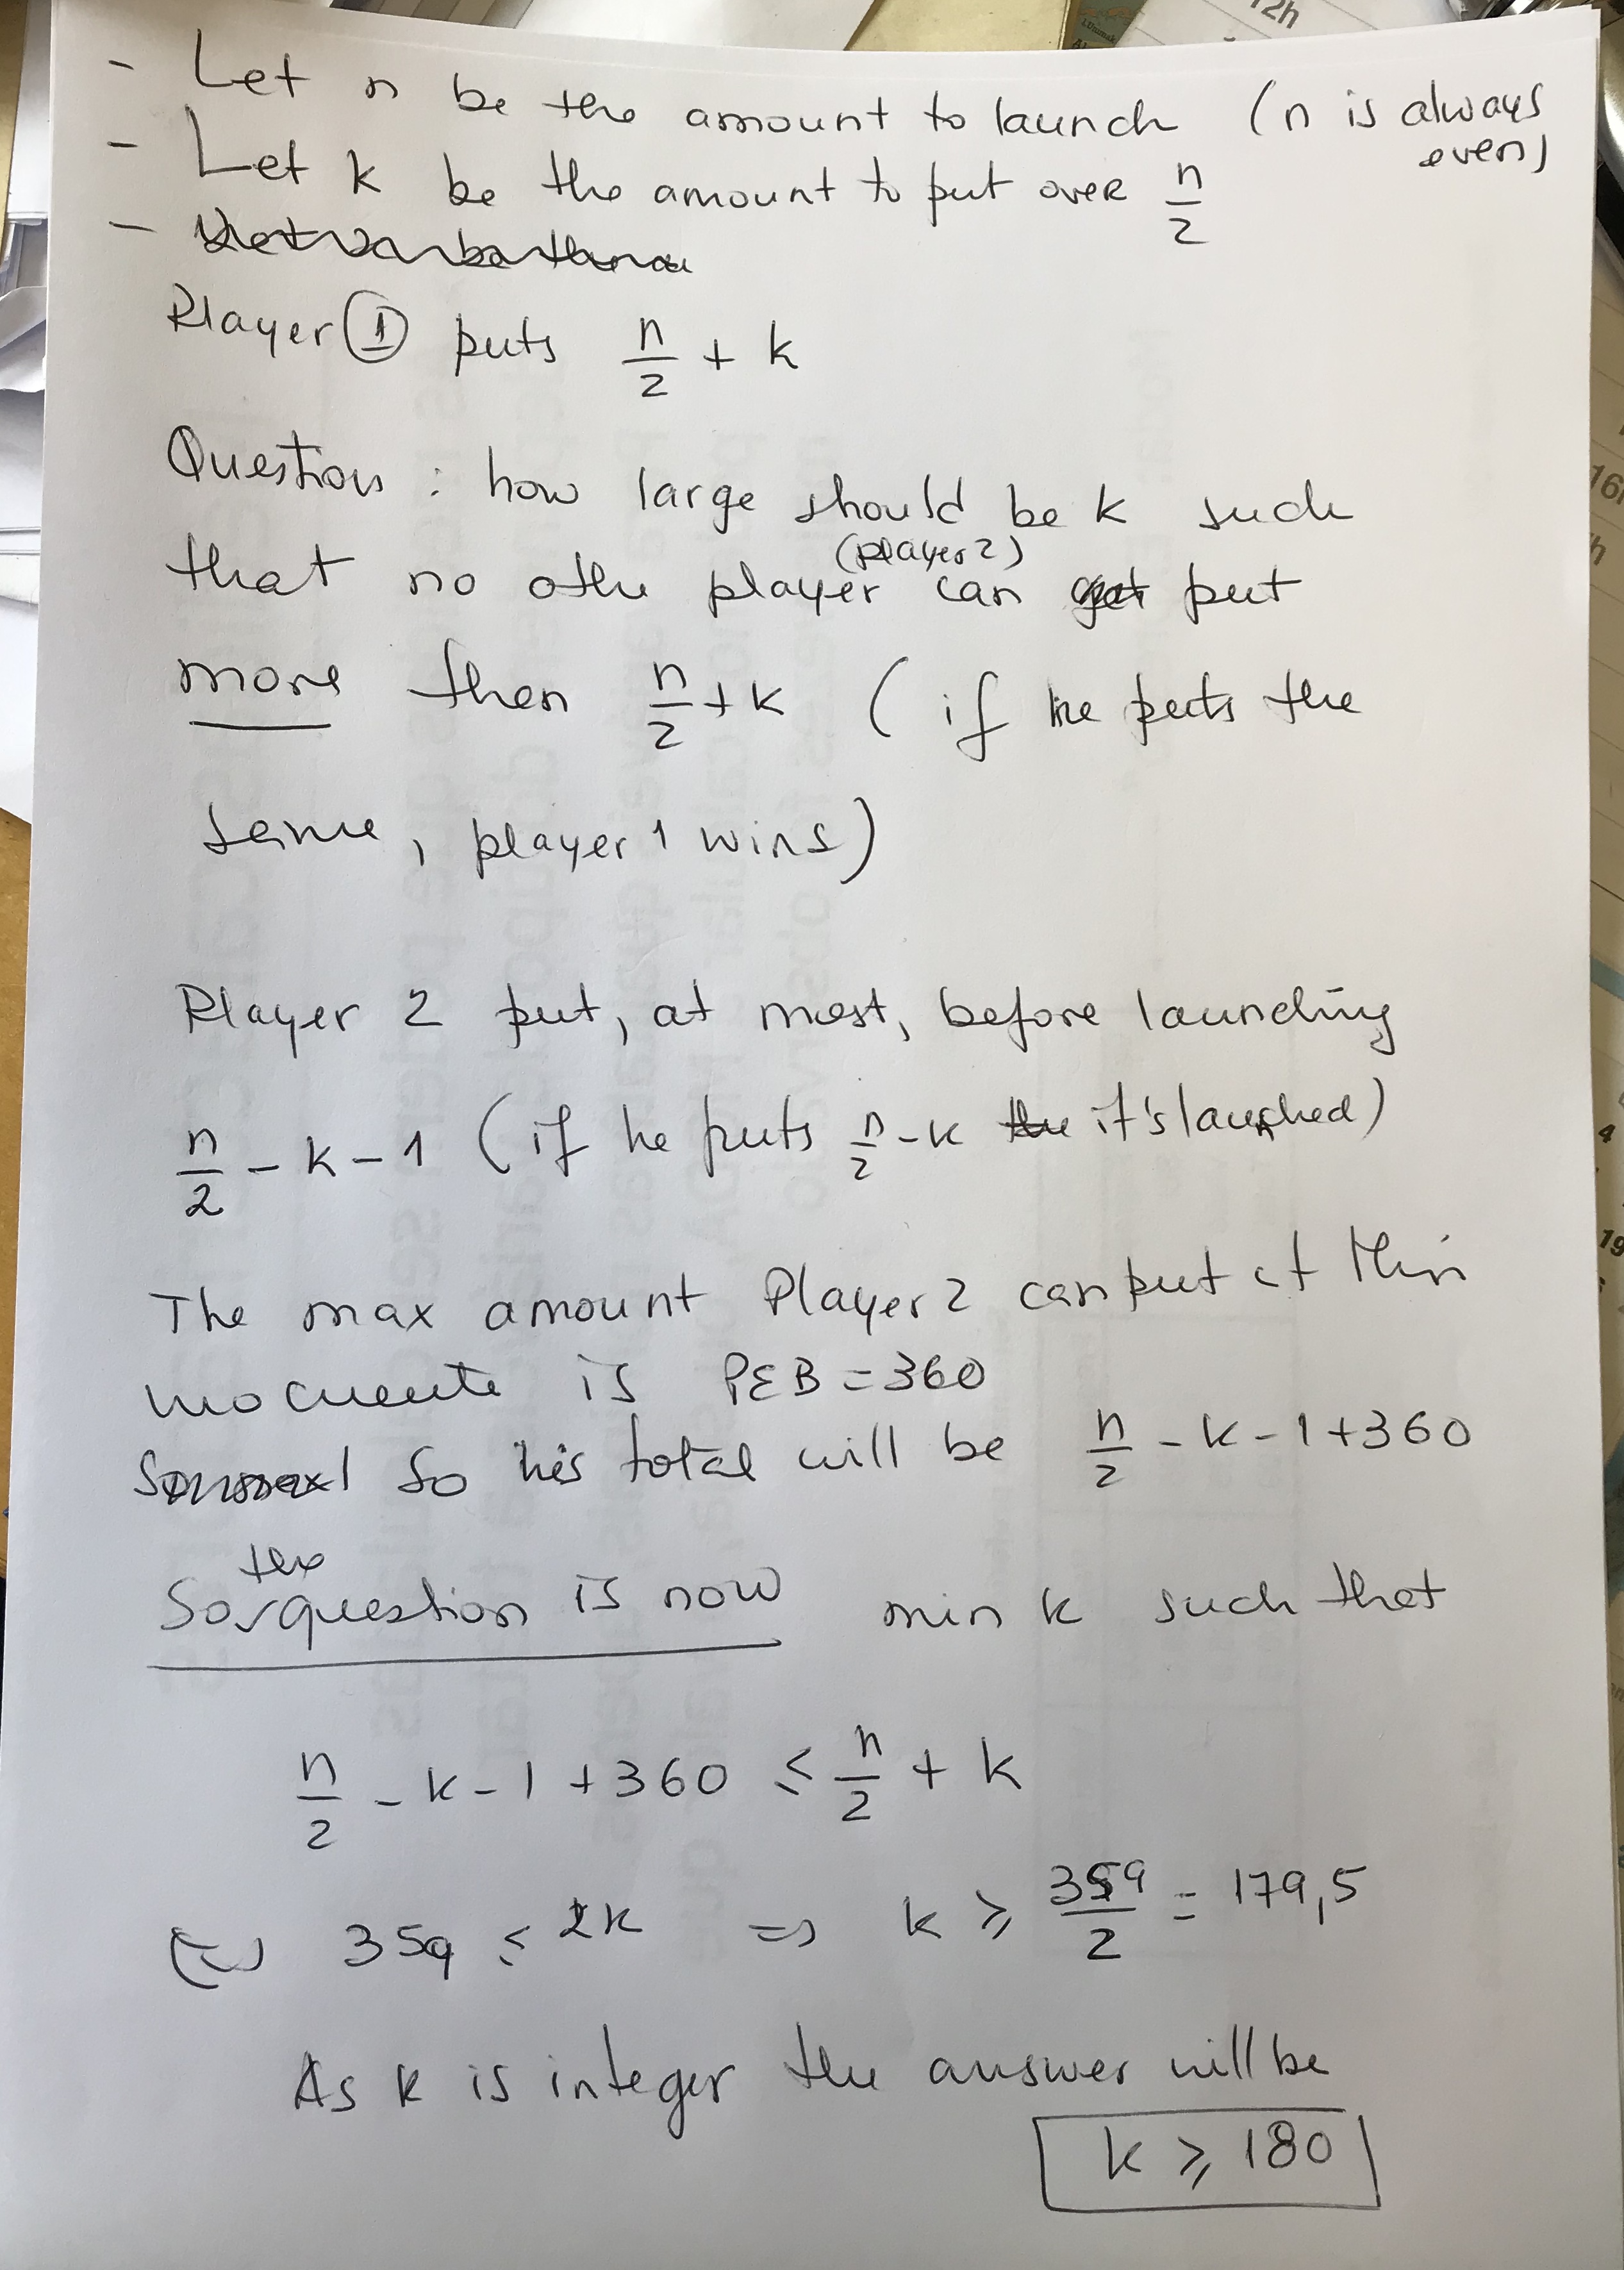 - Let n be the amount to launch (n is always
even)
- Let k be the amount to put over n/2
-
Player ① puts n/2 + k
Question : how large should be k such
(player 2)
that no othe player can put
more then n/2 + k (if he puts the
same, player 1 wins)
Player 2 put, at most, before launching
n/2 - k - 1 (if he puts n/2 - k it's launched)
The max amount Player 2 can put at this
moment is PEB = 360
So his total will be n/2 - k - 1 + 360
the
So question is now min k such that
n/2 - k - 1 + 360 ≤ n/2 + k
(=) 359 ≤ 2k => k ≥ 359/2 = 179,5
As k is integer the answer will be
k ≥ 180
12h
16h
h
4
19